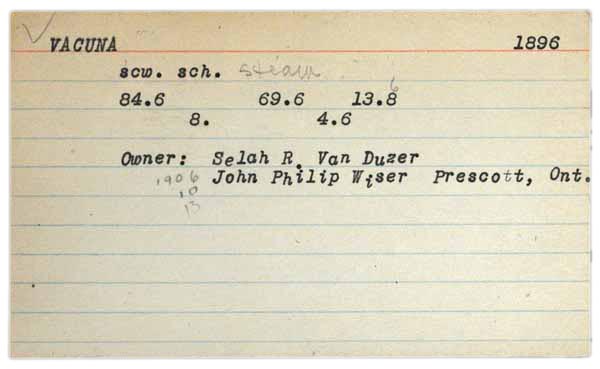 VACUNA 1896
scw. sch. steam
84.6 69.6 13.8 6
8. 4.6
Owner: Selah R. Van Duzer
1906 John Philip Wiser Prescott, Ont.
10
13